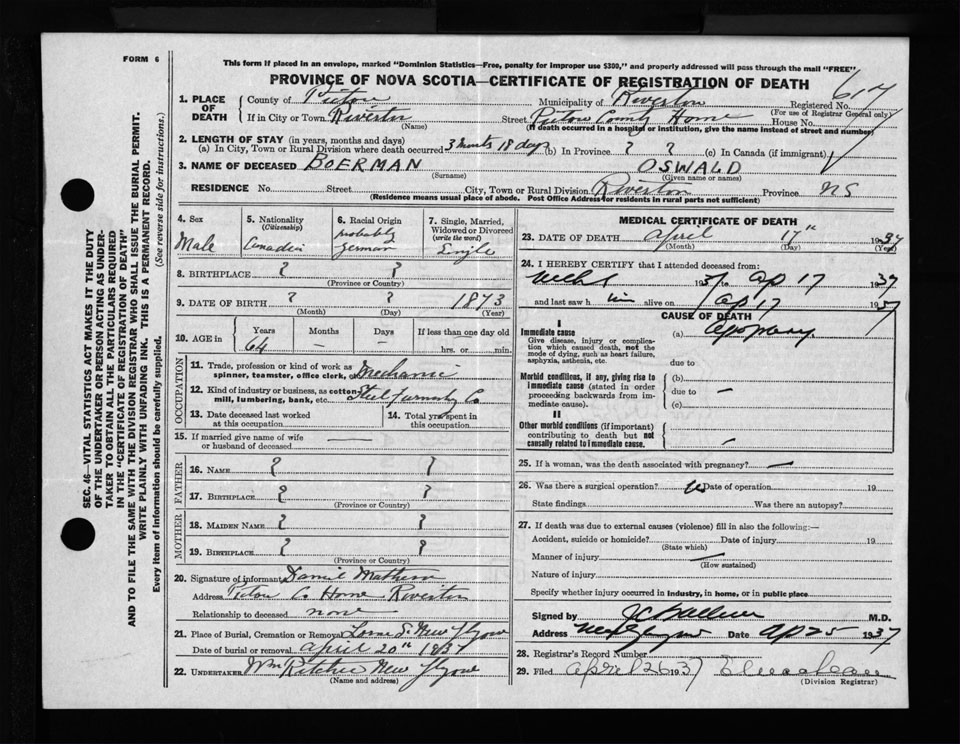 FORM 6
This form if placed in an envelope, marked "Dominion Statistics—Free, penalty for improper use $300," and properly addressed will pass through the mail "FREE".
PROVINCE OF NOVA SCOTIA—CERTIFICATE OF REGISTRATION OF DEATH
617
1. PLACE OF DEATH
County of Pictou Municipality of Riverton Registered No.
(For use of Registrar General only)
If in City or Town Riverton Street Pictou County Home House No.
(Name) (If death occurred in a hospital or institution, give the name instead of street and number)
2. LENGTH OF STAY (in years, months and days)
(a) In City, Town or Rural Division where death occurred 3 months 18 days (b) In Province ? ? (c) In Canada (if immigrant)
3. NAME OF DECEASED BOERMAN OSWALD
(Surname) (Given name or names)
RESIDENCE No. Street City, Town or Rural Division Riverton Province NS
(Residence means usual place of abode. Post Office Address for residents in rural parts not sufficient)
4. Sex
Male
5. Nationality
(Citizenship)
Canadian
6. Racial Origin
probably
german
7. Single, Married,
Widowed or Divorced
(write the word)
Single
8. BIRTHPLACE ? ?
(Province or Country)
9. DATE OF BIRTH ? ? 1873
(Month) (Day) (Year)
10. AGE in
Years Months Days If less than one day old
64 — — hrs. or min.
OCCUPATION
11. Trade, profession or kind of work as
spinner, teamster, office clerk, etc. Mechanic
12. Kind of industry or business, as cotton
mill, lumbering, bank, etc. Steel Co
13. Date deceased last worked
at this occupation
14. Total yrs spent in
this occupation
15. If married give name of wife
or husband of deceased —
FATHER
16. NAME ? ?
17. BIRTHPLACE ? ?
(Province or Country)
MOTHER
18. MAIDEN NAME ? ?
19. BIRTHPLACE ? ?
(Province or Country)
20. Signature of informant Daniel
Address Pictou Co Home Riverton
Relationship to deceased none
21. Place of Burial, Cremation or Removal New
Date of burial or removal april 20th 1937
22. UNDERTAKER Wm Ritchie New
(Name and address)
MEDICAL CERTIFICATE OF DEATH
23. DATE OF DEATH april 17th 1937
(Month) (Day) (Year)
24. I HEREBY CERTIFY that I attended deceased from:
193 to ap 17 1937
and last saw him alive on ap 17 1937
CAUSE OF DEATH
I
Immediate cause (a)
Give disease, injury or complica-
tion which caused death, not the
mode of dying, such as heart failure,
asphyxia, asthenia, etc.
due to
Morbid conditions, if any, giving rise to
immediate cause (stated in order
proceeding backwards from im-
mediate cause).
(b)
due to —
(c)
II
Other morbid conditions (if important)
contributing to death but not
causally related to immediate cause. —
25. If a woman, was the death associated with pregnancy? —
26. Was there a surgical operation? Date of operation 19
State findings Was there an autopsy?
27. If death was due to external causes (violence) fill in also the following:—
Accident, suicide or homicide? Date of injury 19
(State which)
Manner of injury —
(How sustained)
Nature of injury
Specify whether injury occurred in industry, in home, or in public place
Signed by M.D.
Address Date ap 25 1937
28. Registrar's Record Number
29. Filed april 26 1937
(Division Registrar)
SEC. 46—VITAL STATISTICS ACT MAKES IT THE DUTY
OF THE UNDERTAKER OR PERSON ACTING AS UNDER-
TAKER TO OBTAIN ALL THE PARTICULARS REQUIRED
IN THE "CERTIFICATE OF REGISTRATION OF DEATH"
AND TO FILE THE SAME WITH THE DIVISION REGISTRAR WHO SHALL ISSUE THE BURIAL PERMIT.
WRITE PLAINLY WITH UNFADING INK. THIS IS A PERMANENT RECORD.
Every item of information should be carefully supplied. (See reverse side for instructions.)